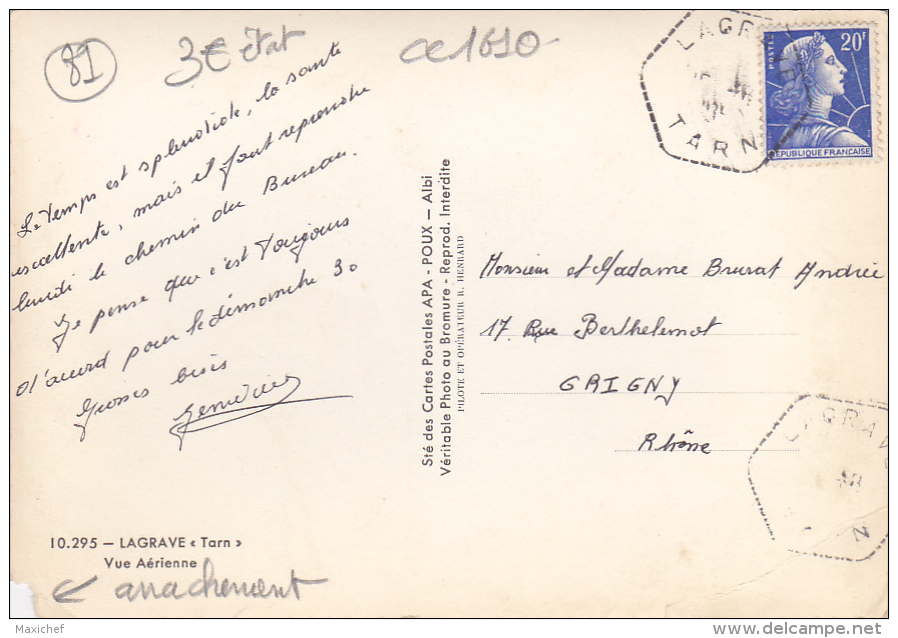 81
3€ Etat
CC1610
LAGRAVE
TARN
POSTES
20F
REPUBLIQUE FRANÇAISE
Le Temps est splendide, la sante
excellente, mais il faut reprendre
lundi le chemin du Bureau.
Je pense que c'est toujours
d'accord pour le dimanche 30
Grosses bises
Ste des Cartes Postales APA - POUX — Albi
Véritable Photo au Bromure - Reprod. Interdite
PILOTE ET OPÉRATEUR R. HENRARD
Monsieur et Madame Brurat Andrée
17. Rue Berthelemot
GRIGNY
Rhône
LAGRAVE
10.295 — LAGRAVE « Tarn »
Vue Aérienne
arrachement
Maxichef
www.delcampe.net